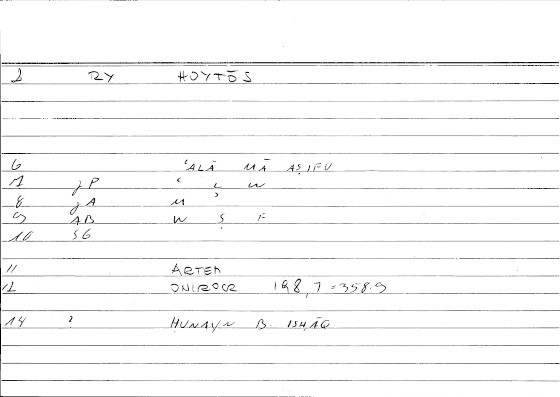 1 RY HOYTŌS
6 ʿALĀ MĀ AṢIFU
7 JP ʿ L W
8 JA M ʾ
9 AB W Ṣ F
10 SG
11 ARTEM
12 ONIROCR 198,7 = 358.9
14 ? HUNAYN B. ISHĀQ